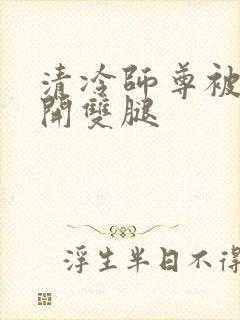 清冷師尊被
開雙腿
浮生半日不得